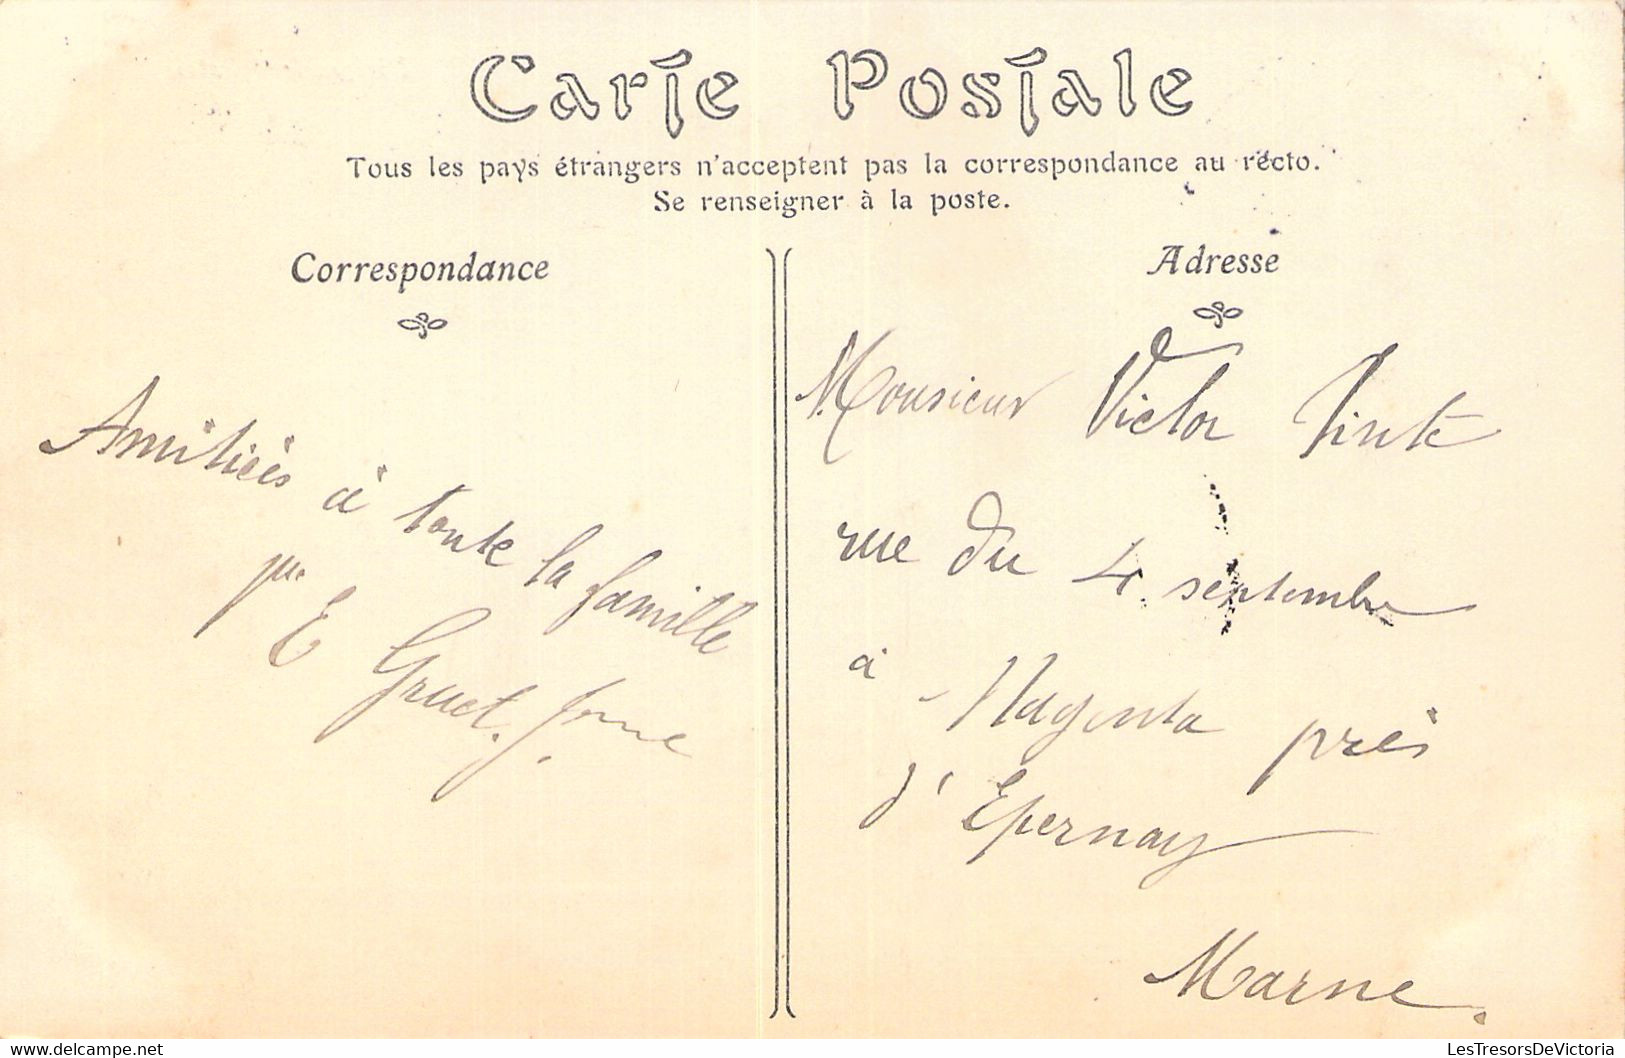 Carte Postale
Tous les pays étrangers n'acceptent pas la correspondance au recto.
Se renseigner à la poste.
Correspondance
Amitiés à toute la famille
E Gruet.
Adresse
Monsieur Victor
rue du 4 septembre
à Magenta près
d'Epernay
Marne.
LesTresorsDeVictoria